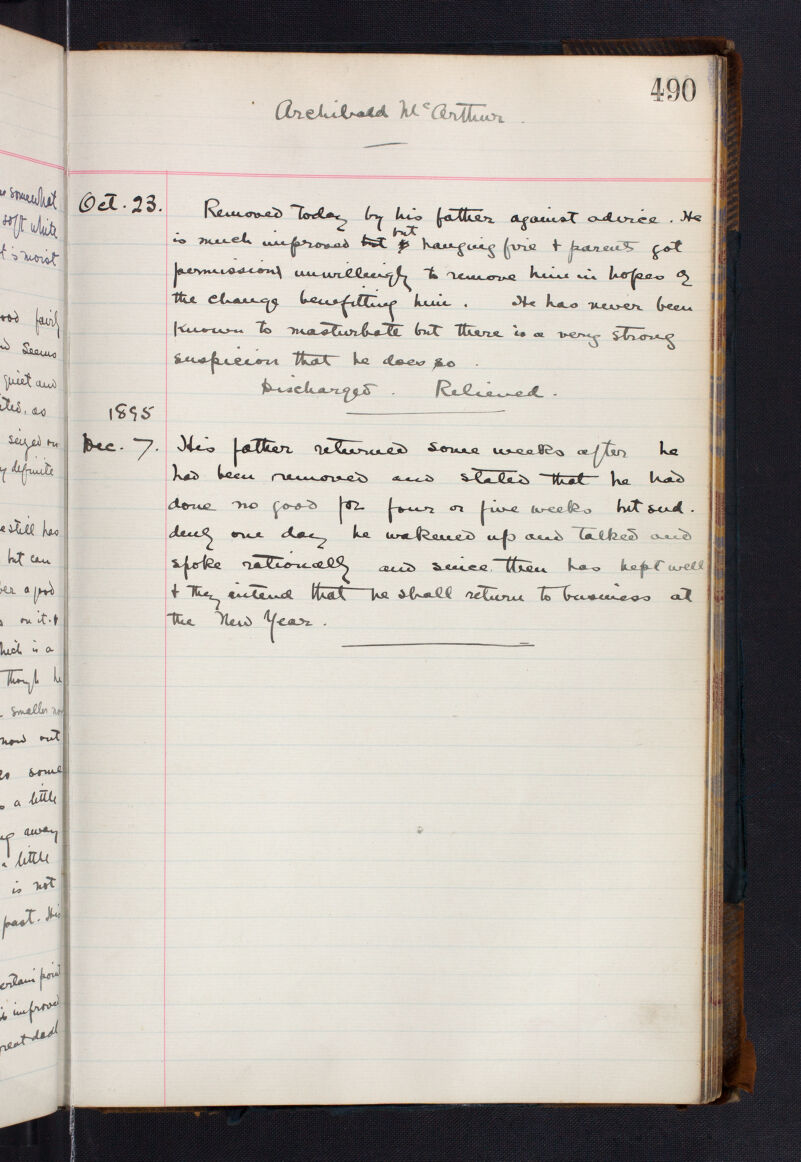 490
Archibald McArthur.
Oct. 23. Removed today by his father against advice. He
is much improved but but hanging fire & parents got
permission unwillingly to remove him in hopes of
the change benefitting him. He has never been
known to masturbate but there is a very strong
suspicion that he does so.
Discharged. Relieved.
1895
Dec. 7. His father returned some weeks after he
had been removed and stated that he had
done no good for four or five weeks but sud-
denly one day he wakened up and talked and
spoke rationally and since then has kept well
& they intend that he shall return to business at
the New Year.
somewhat
soft white
is moist
fairly
seems
quiet and
as
seized on
definite
still has
but can
a good
on it. &
which is a
Though he
smaller
now out
some
a little
away
a little
is not
past. His
certain point
is improved
great deal